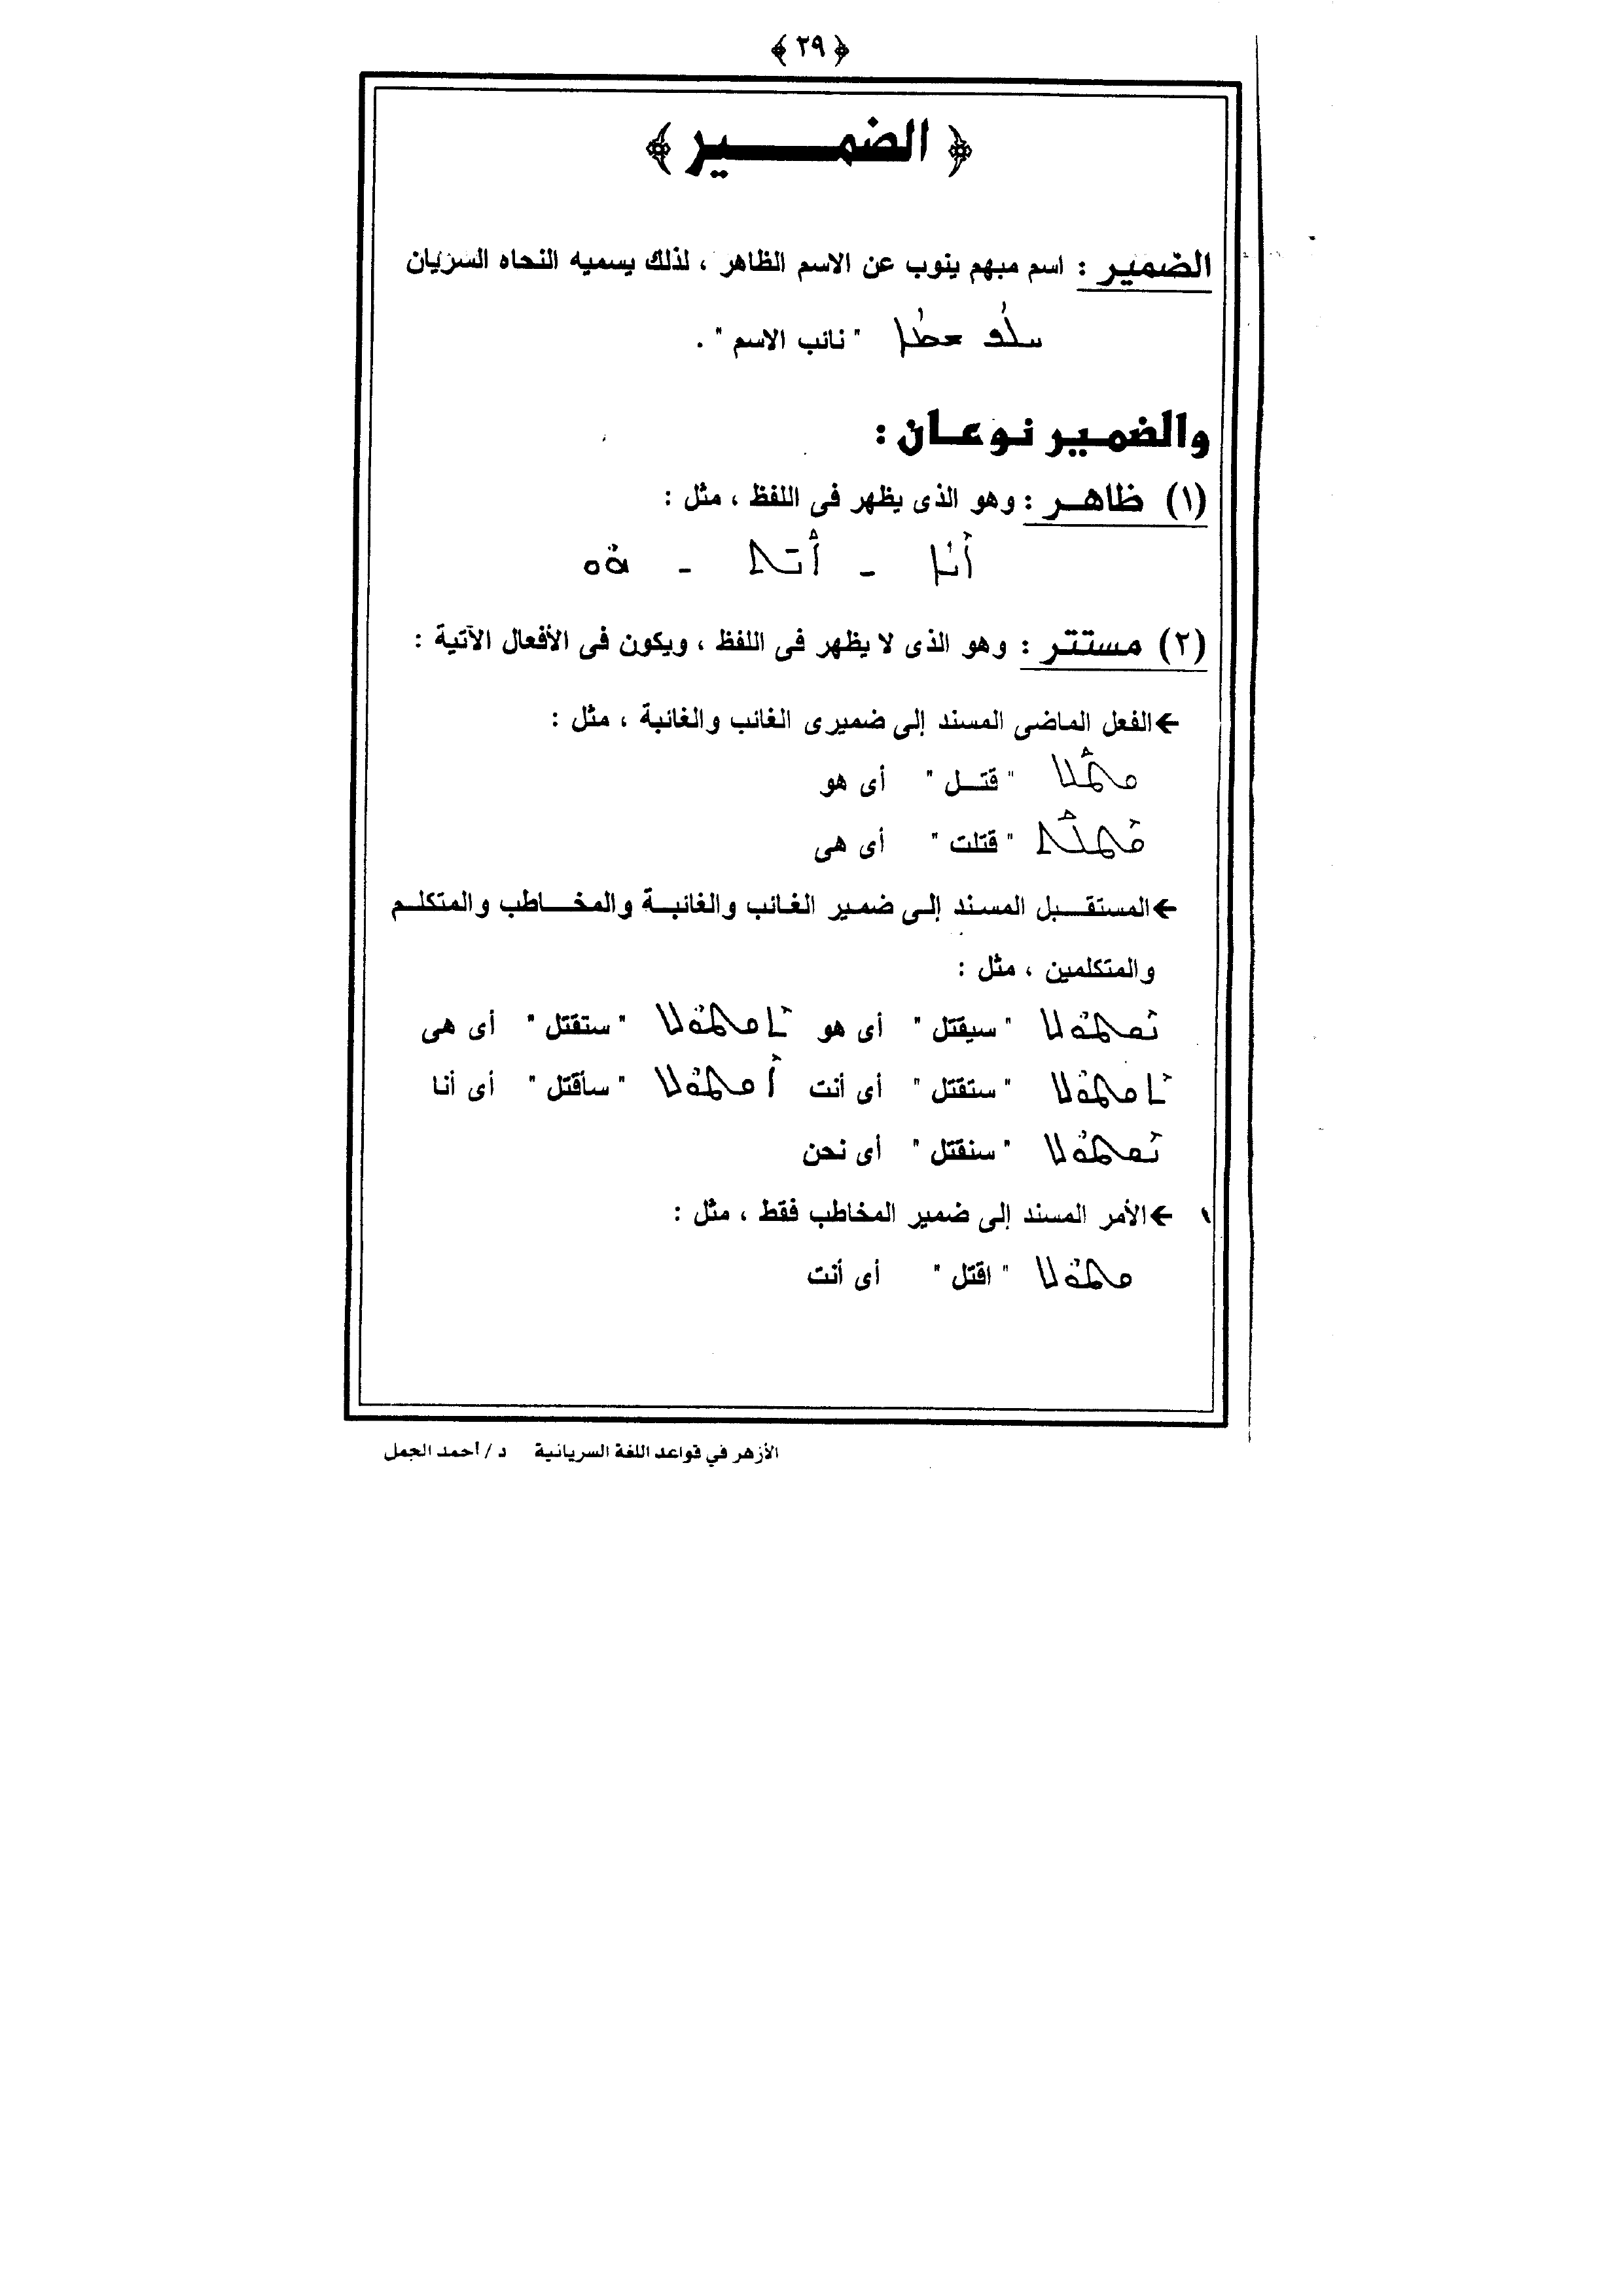 ﴿ ٢٩ ﴾
﴿ الضمير ﴾
الضمير : اسم مبهم ينوب عن الاسم الظاهر ، لذلك يسميه النحاه السريان
ܚܠܳܦ ܫܡܳܐ " نائب الاسم " .
والضمير نوعان :
(١) ظاهر : وهو الذى يظهر فى اللفظ ، مثل :
ܐܶܢܳܐ - ܐܰܢܬ - ܗܽܘ
(٢) مستتر : وهو الذى لا يظهر فى اللفظ ، ويكون فى الأفعال الآتية :
← الفعل الماضى المسند إلى ضميرى الغائب والغائبة ، مثل :
ܩܛܰܠ " قتل " أى هو
ܩܶܛܠܰܬ " قتلت " أى هى
← المستقبل المسند إلى ضمير الغائب والغائبة والمخاطب والمتكلم
والمتكلمين ، مثل :
ܢܶܩܛܽܘܠ " سيقتل " أى هو ܬܶܩܛܽܘܠ " ستقتل " أى هى
ܬܶܩܛܽܘܠ " ستقتل " أى أنت ܐܶܩܛܽܘܠ " سأقتل " أى أنا
ܢܶܩܛܽܘܠ " سنقتل " أى نحن
← الأمر المسند إلى ضمير المخاطب فقط ، مثل :
ܩܛܽܘܠ " اقتل " أى أنت
الأزهر في قواعد اللغة السريانية د / أحمد الجمل